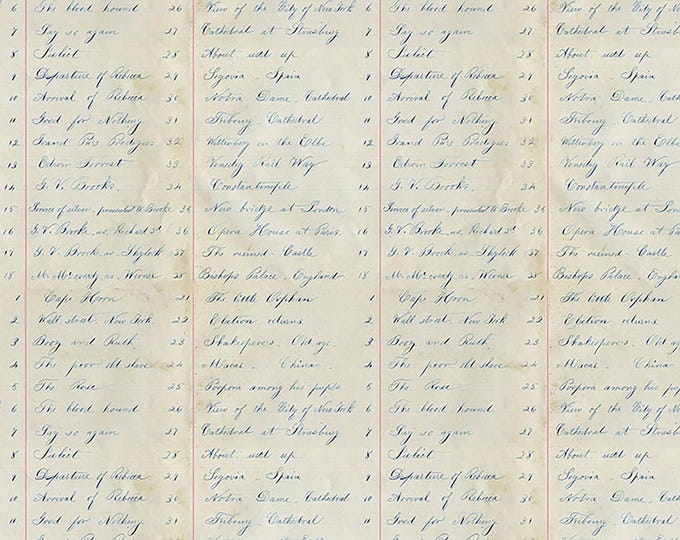 The blood hound 26 View of the City of New York 6 The blood hound 26 View of the City of New York
7 Say so again 27 Cathedral at Strassburg 7 Say so again 27 Cathedral at Strassburg
8 Juliet 28 About used up 8 Juliet 28 About used up
9 Departure of Rebecca 29 Segovia „ Spain 9 Departure of Rebecca 29 Segovia „ Spain
10 Arrival of Rebecca 30 Notra Dame. Cathedral 10 Arrival of Rebecca 30 Notra Dame. Cathedral
11 Good for Nothing 31 Cathedral 11 Good for Nothing 31 Cathedral
12 Grand Prodigies 32 Wittenberg on the Elbe 12 Grand Prodigies 32 Wittenberg on the Elbe
13 Edwin Forrest 33 Rail Way 13 Edwin Forrest 33 Rail Way
14 G. V. Brooks. 34 Constantinople 14 G. V. Brooks. 34 Constantinople
15 Service of silver. presented to Brooke 35 New bridge at London 15 Service of silver. presented to Brooke 35 New bridge at London
16 G. V. Brooke. as. Richard 3d 36 Opera House at Paris 16 G. V. Brooke. as. Richard 3d 36 Opera House at Paris
17 G. V. Brooke as Shylock 37 The ruined - Castle 17 G. V. Brooke as Shylock 37 The ruined - Castle
18 as. Werner 38 Bishops Palace. England 18 as. Werner 38 Bishops Palace. England
1 Cape Horn 21 The little Orphan 1 Cape Horn 21 The little Orphan
2 Wall street. New York 22 Election returns 2 Wall street. New York 22 Election returns
3 Booz and Ruth 23 Shakesperes. Old age. 3 Booz and Ruth 23 Shakesperes. Old age.
4 The poor old slave 24 China. 4 The poor old slave 24 China.
5 The Rose 25 Porpora among his pupils 5 The Rose 25 Porpora among his pupils
6 The blood hound 26 View of the City of New York 6 The blood hound 26 View of the City of New York
7 Say so again 27 Cathedral at Strassburg 7 Say so again 27 Cathedral at Strassburg
8 Juliet 28 About used up 8 Juliet 28 About used up
9 Departure of Rebecca 29 Segovia „ Spain 9 Departure of Rebecca 29 Segovia „ Spain
10 Arrival of Rebecca 30 Notra Dame. Cathedral 10 Arrival of Rebecca 30 Notra Dame. Cathedral
11 Good for Nothing 31 Cathedral 11 Good for Nothing 31 Cathedral